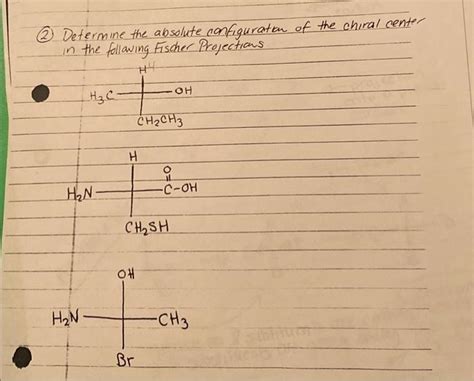 ② Determine the absolute configuraton of the chiral center
in the following Fischer Projections
H 4
H₃C OH
CH₂CH₃
H
O
H₂N C-OH
CH₂SH
OH
H₂N CH₃
Br